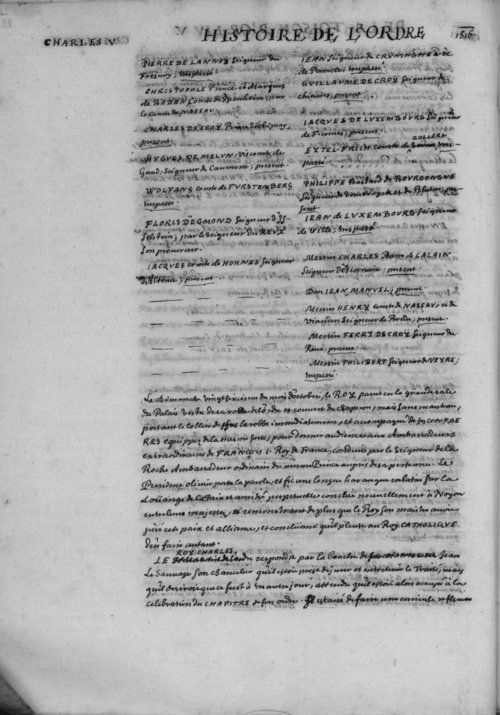 CHARLES V
HISTOIRE DE L'ORDRE
1516.
PIERRE DE LANNOY Seigneur du
Fresnoy;
CHRISTOPHLE Prince et Marquis
de BADEN Comte de Sponheim; par
le Comte de NASSAU.
CHARLES DE CROY, Prince de Chimay;
present
HVGVES DE MELVN, Vicomte de
Gand, Seigneur de Caumont; present.
WOLFANG Comte de FVRSTENBERG
FLORIS DEGMOND Seigneur d'Is-
selstein; par le Seigneur du REUX
son procureur.
JACQUES comte de HORNES Seigneur
d'Altena; present
JEAN Seigneur de
de
GVILLAVME DE CROY Seigneur de
Chievres; present.
JACQVES DE LVXEMBOVRG Seigneur
de Fiennes; present.
ZOLLERN
EYTEL-FRICH Comte de
PHILIPPE Bastard de BOVRGONGNE
Seigneur de et de
JEAN de LVXEMBOVRG Seigneur
de Ville;
Messire CHARLES Baron de LALAIN
Seigneur d'Escornaix; present.
Don JEAN MANVEL; present.
Messire HENRY comte de NASSAV, et de
Vianden Seigneur de Breda; present.
Messire FERRY DE CROY Seigneur du
Reux; present.
Messire PHILIBERT Seigneur de VEYRE;
Le dimanche vingtsixiesme du mois d'octobre, le ROY parut en la grande sale
du Palais vestu de sa robbe de l'ordre et couvert du chapron, mais sans manteau,
portant le collier sur la robbe immediatement, et accompagné de ses CONFRE
RES equippez de la mesme sorte, pour donner audience aux Ambassadeurs
extraordinaires de FRANÇOIS I. Roy de France, conduits par le Seigneur de la
Roche Ambassadeur ordinaire du mesme Prince aupres de sa personne. Le
President olivier porta la parole, et fit une longue harangue en latin sur la
Loüange de la Paix et amitié perpetuelle conclüe nouvellement à Noyon
entre leurs majestez, et remonstrant de plus que le Roy son maistre avoit
juré cet paix et alliance, et concluant qu'il pleust au Roy CATHOLIQUE
d'en faire autant.
ROY CHARLES,
LE respondit par la bouche de Jean
le Sauvage son chancelier qu'il estoit prest de jurer et entretenir le Traité; mais
qu'il desiroit que ce fust à un autre jour, attendu qu'il estoit alors occupé à la
celebration du CHAPITRE de son ordre. de faire une